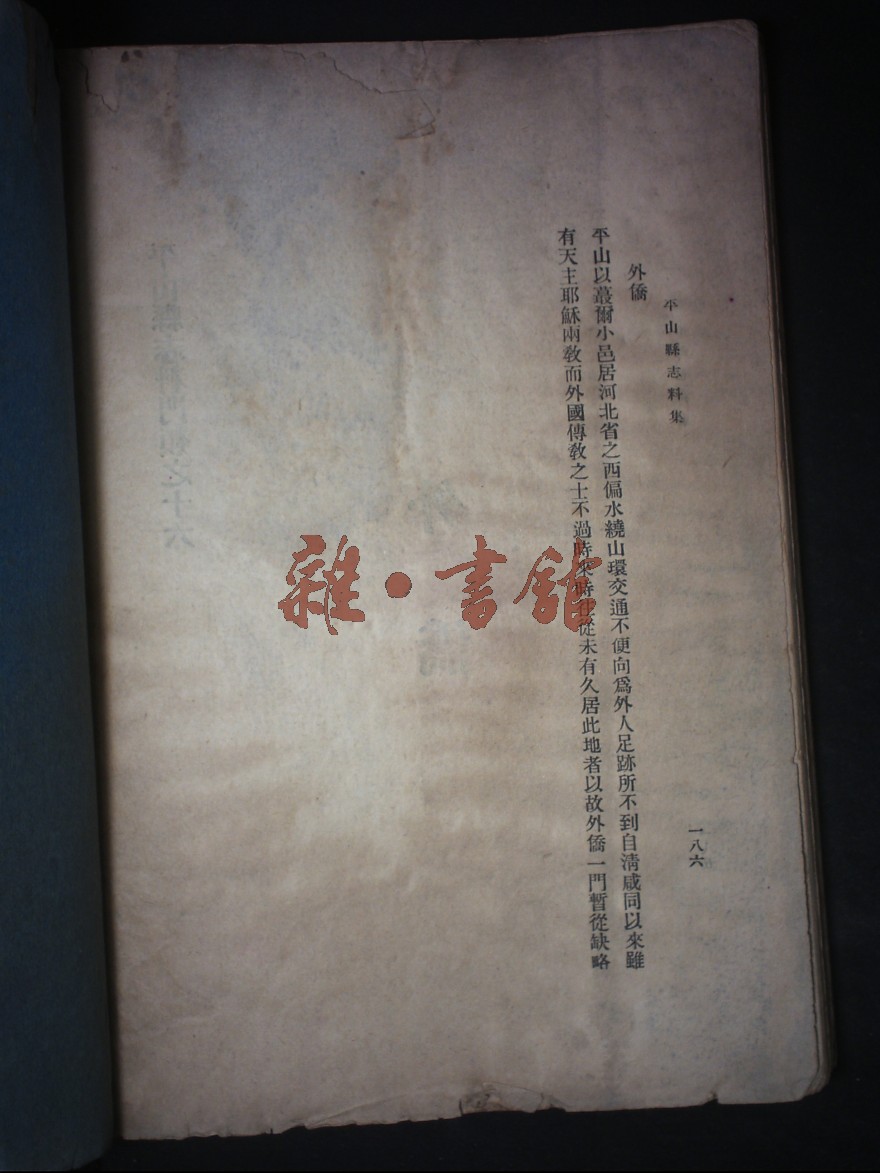 平山縣志料集
一八六
外僑
平山以蕞爾小邑居河北省之西偏水繞山環交通不便向爲外人足跡所不到自清咸同以來雖
有天主耶穌兩教而外國傳教之士不過時來時往從未有久居此地者以故外僑一門暫從缺略
雜·書館